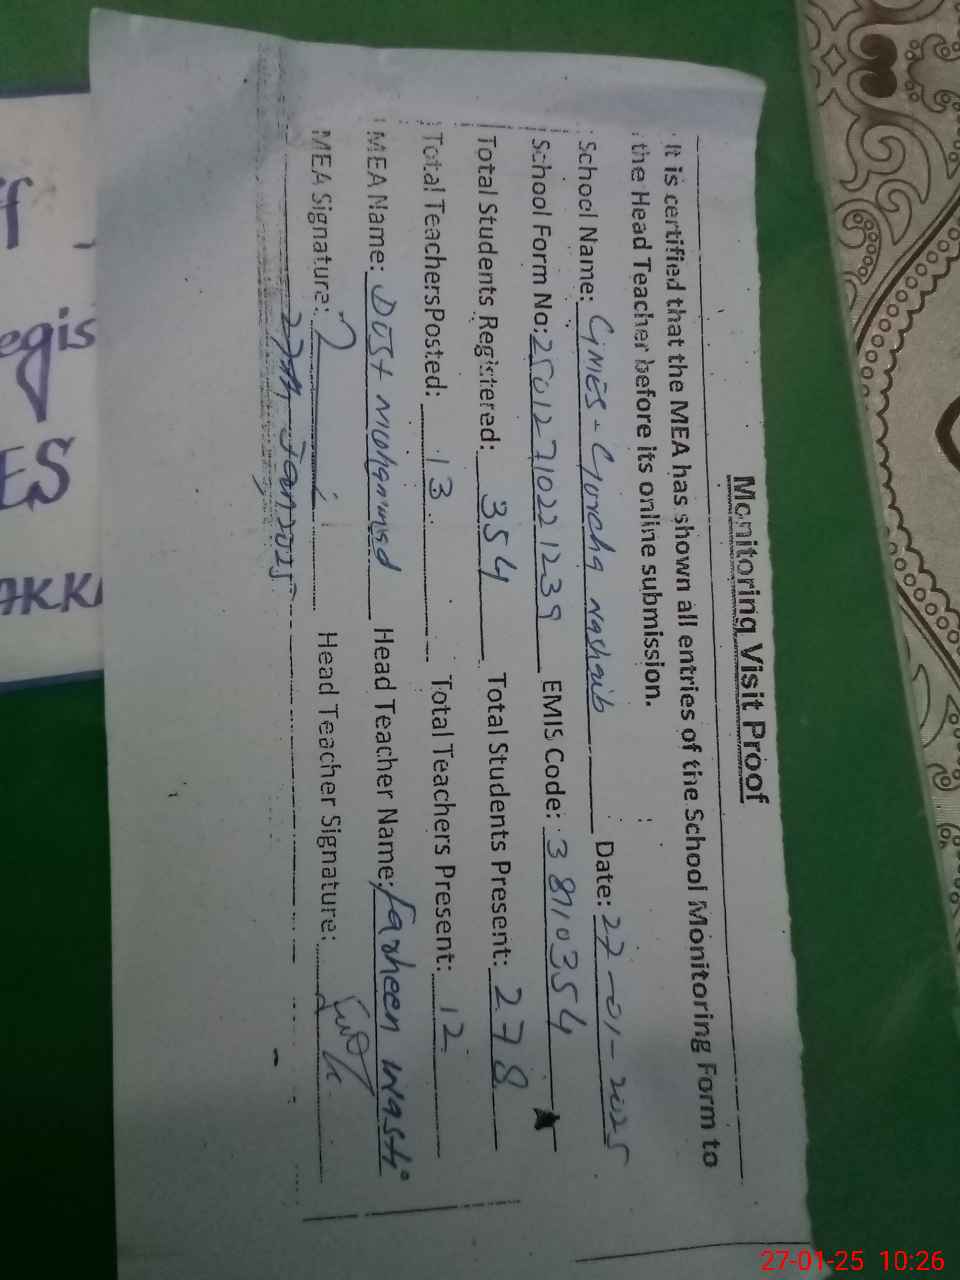 Monitoring Visit Proof
It is certified that the MEA has shown all entries of the School Monitoring Form to
the Head Teacher before its online submission.
School Name: GMES - Gurcha Nashaib Date: 27-01-2025
School Form No: 25012710221239 EMIS Code: 3 8110354
Total Students Registered: 354 Total Students Present: 278
Total Teachers Posted: 13 Total Teachers Present: 12
MEA Name: Dost Mohammad Head Teacher Name: Farheen Wasti
MEA Signature: Head Teacher Signature:
27th Jan 2025
egis
ES
AKK
27-01-25 10:26